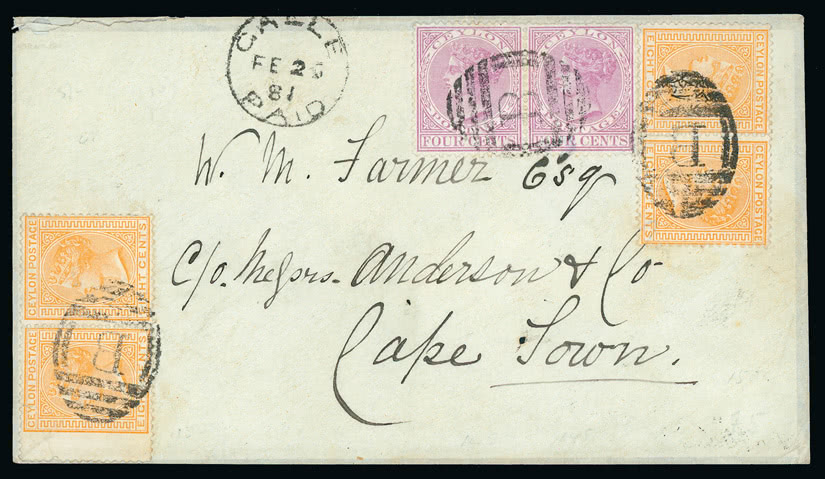 GALLE
FE 26
81
PAID
CEYLON
FOUR CENTS
CEYLON
FOUR CENTS
CEYLON POSTAGE
EIGHT CENTS
CEYLON POSTAGE
EIGHT CENTS
B
B
W. M. Farmer Esq
C/o. Messrs. Anderson & Co
Cape Town.
CEYLON POSTAGE
EIGHT CENTS
CEYLON POSTAGE
EIGHT CENTS
B